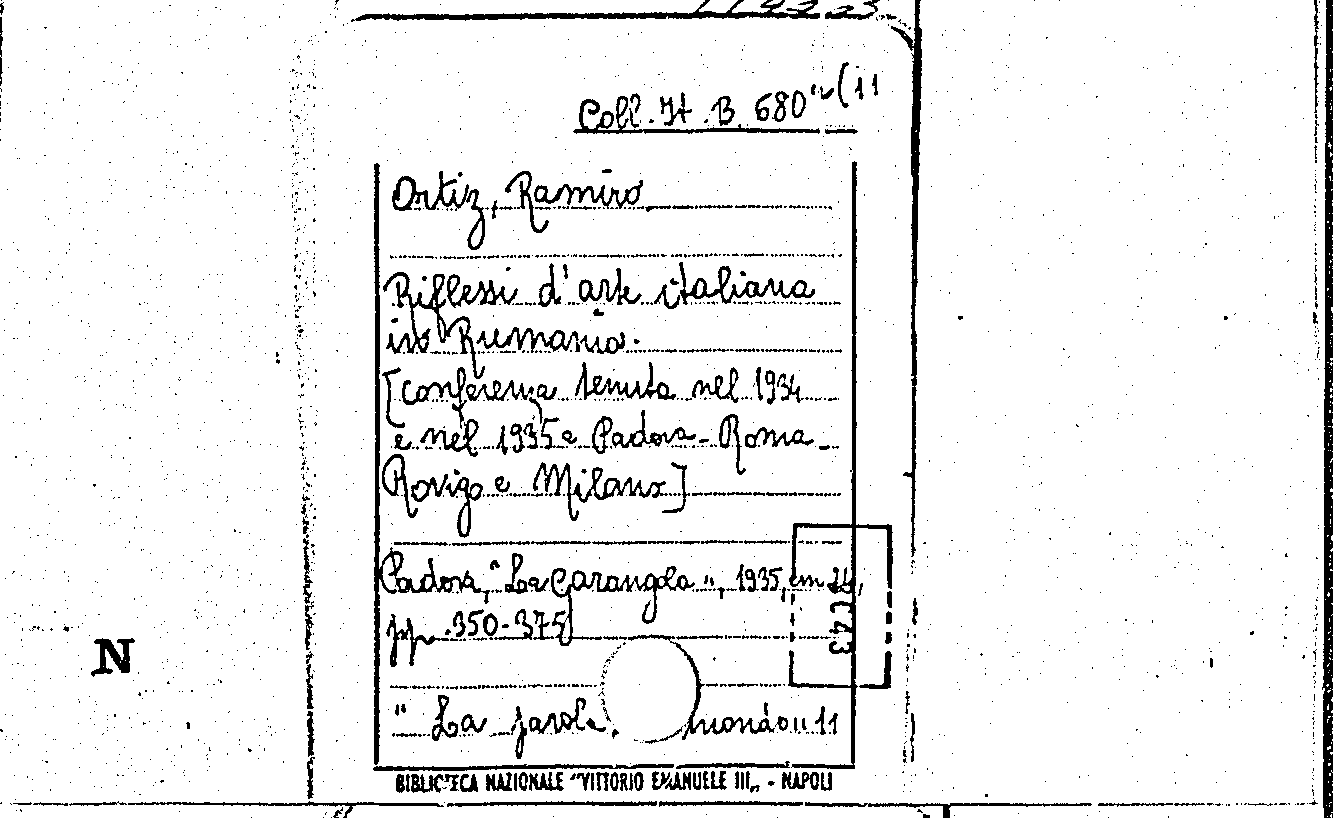 Coll. It. B. 680 (11
Ortiz, Ramiro
Riflessi d'arte italiana
in Rumania.
[Conferenza tenuta nel 1934
e nel 1935 a Padova - Roma -
Rovigo e Milano]
Padova, "La Garangola", 1935, in
pp. 350-375
" La parola mondo" 11
N
BIBLIOTECA NAZIONALE "VITTORIO EMANUELE III„ - NAPOLI